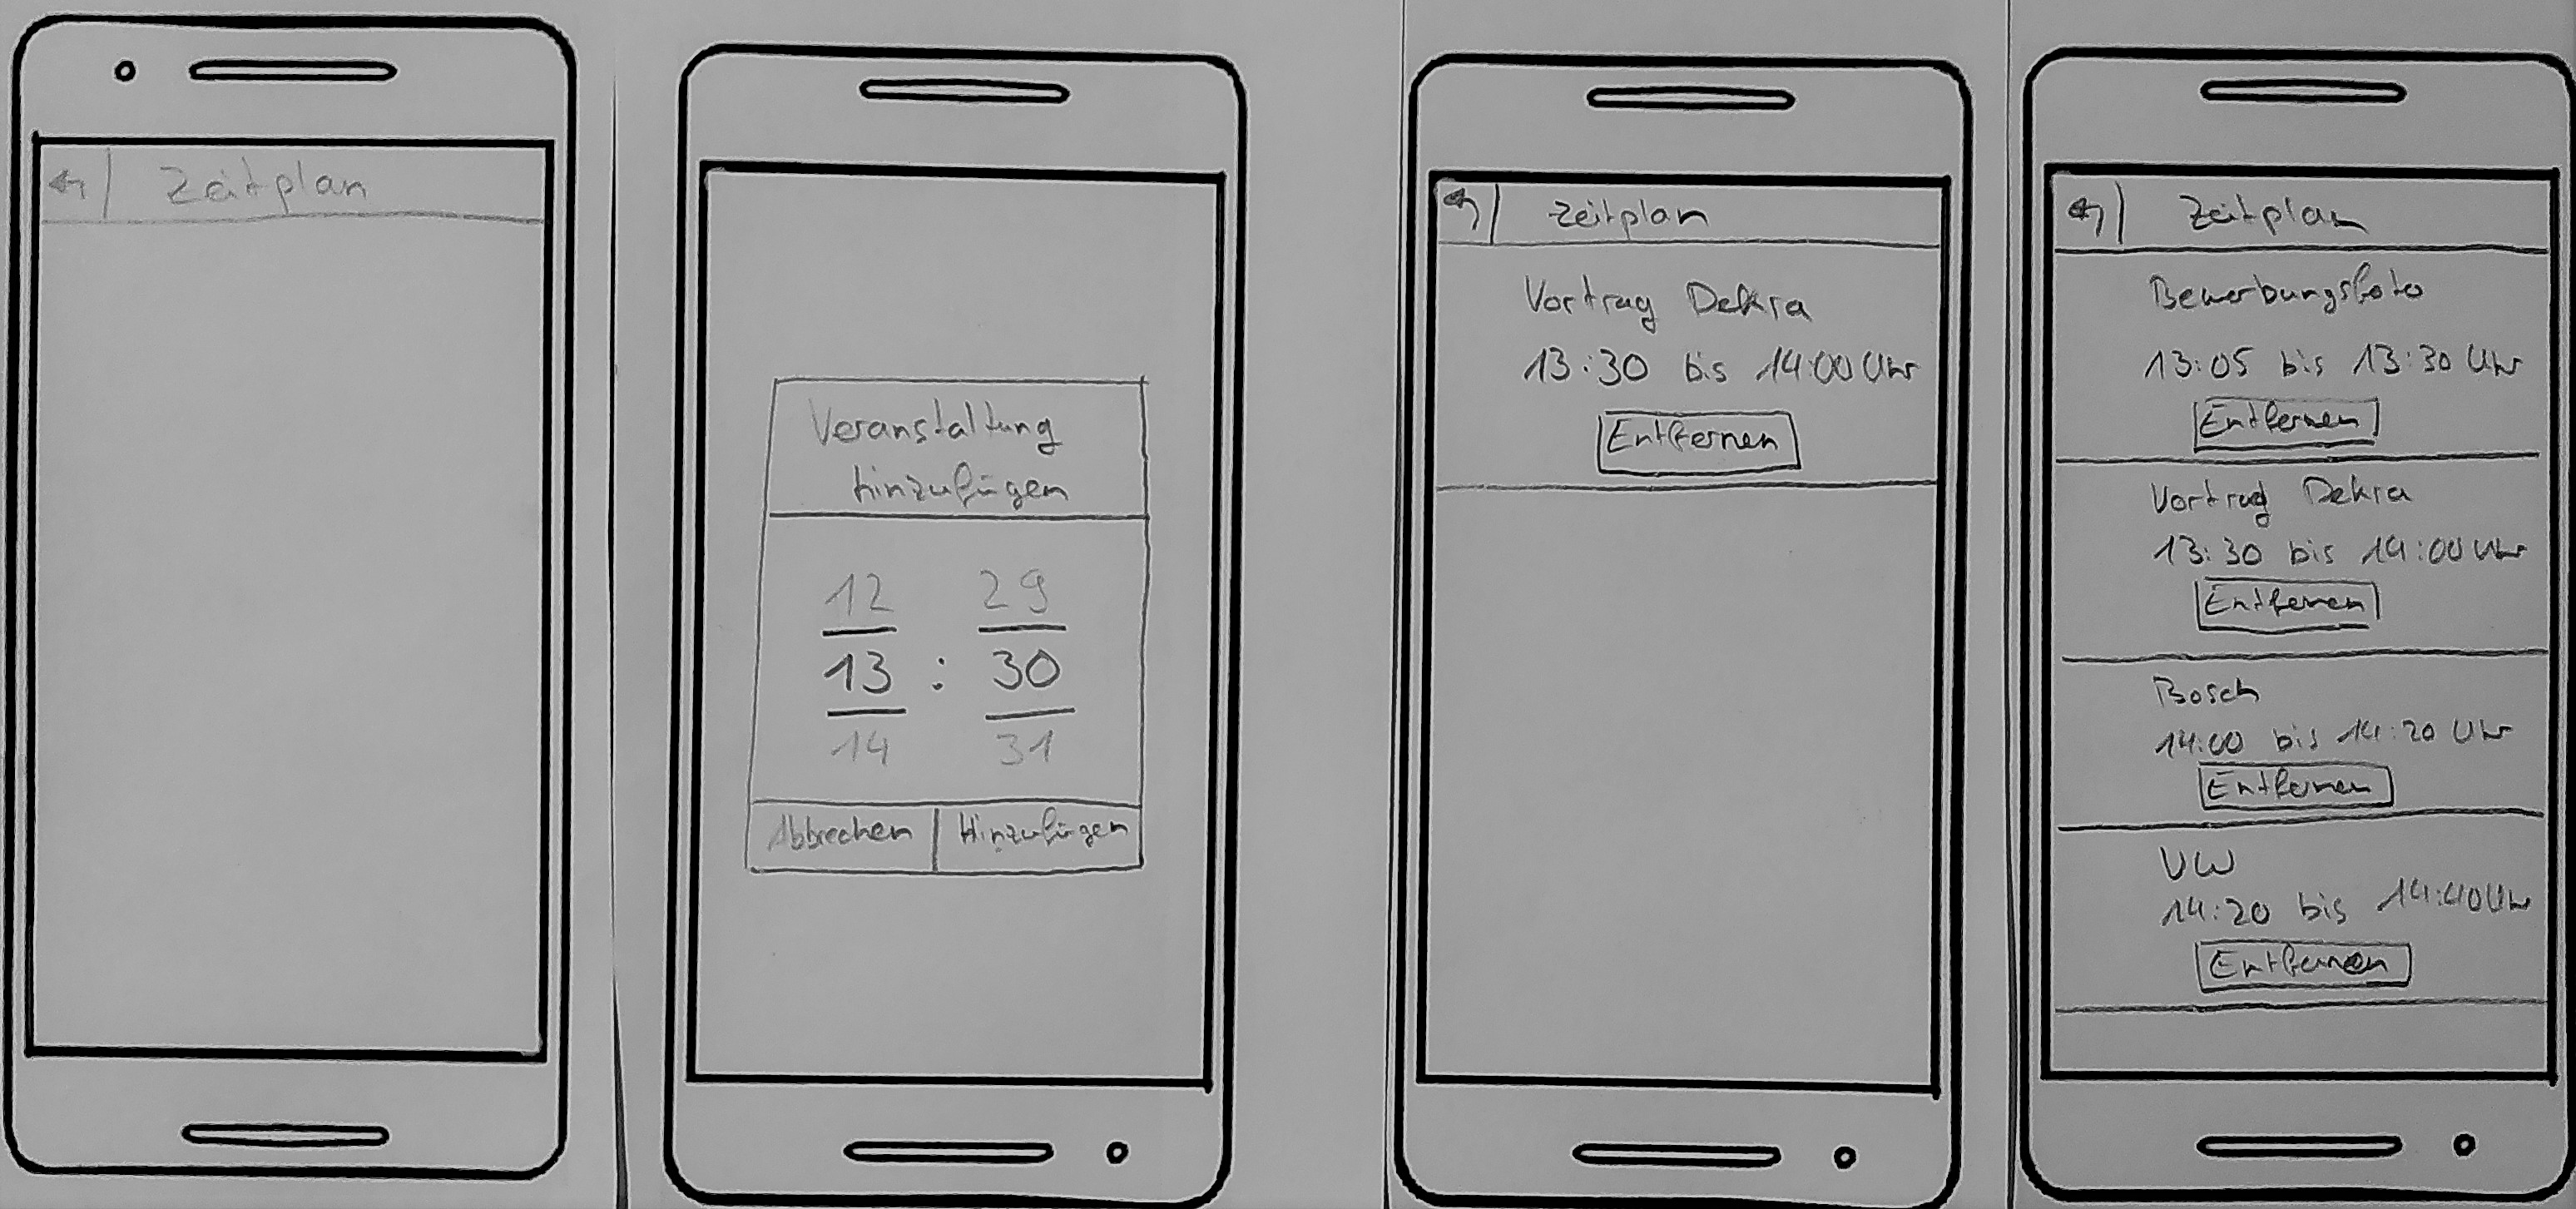 Zeitplan
Veranstaltung
hinzufügen
12 29
13 : 30
14 31
Abbrechen Hinzufügen
Zeitplan
Vortrag Dekra
13:30 bis 14:00 Uhr
Entfernen
Zeitplan
Bewerbungsfoto
13:05 bis 13:30 Uhr
Entfernen
Vortrag Dekra
13:30 bis 14:00 Uhr
Entfernen
Bosch
14:00 bis 14:20 Uhr
Entfernen
VW
14:20 bis 14:40 Uhr
Entfernen